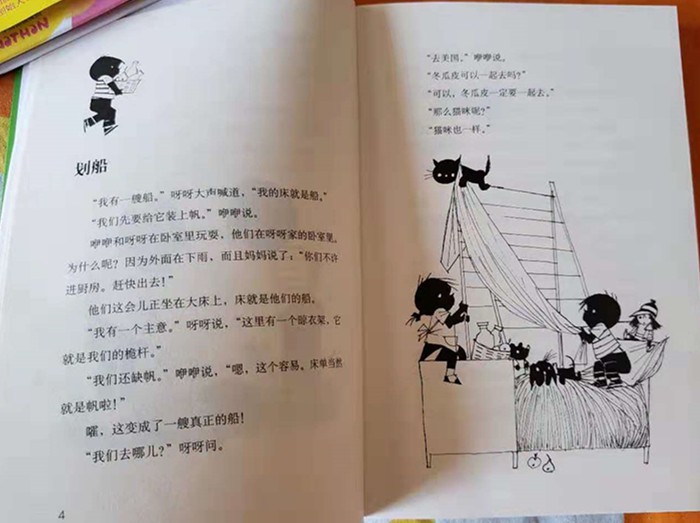 NATHAN
划船
“我有一艘船。”呀呀大声喊道，“我的床就是船。”
“我们先要给它装上帆。”咿咿说。
咿咿和呀呀在卧室里玩耍，他们在呀呀家的卧室里。
为什么呢？因为外面在下雨，而且妈妈说了：“你们不许
进厨房。赶快出去！”
他们这会儿正坐在大床上，床就是他们的船。
“我有一个主意。”呀呀说，“这里有一个晾衣架，它
就是我们的桅杆。”
“我们还缺帆。”咿咿说，“嗯，这个容易。床单当然
就是帆啦！”
嚯，这变成了一艘真正的船！
“我们去哪儿？”呀呀问。
4
“去美国。”咿咿说。
“冬瓜皮可以一起去吗？”
“可以，冬瓜皮一定要一起去。”
“那么猫咪呢？”
“猫咪也一样。”